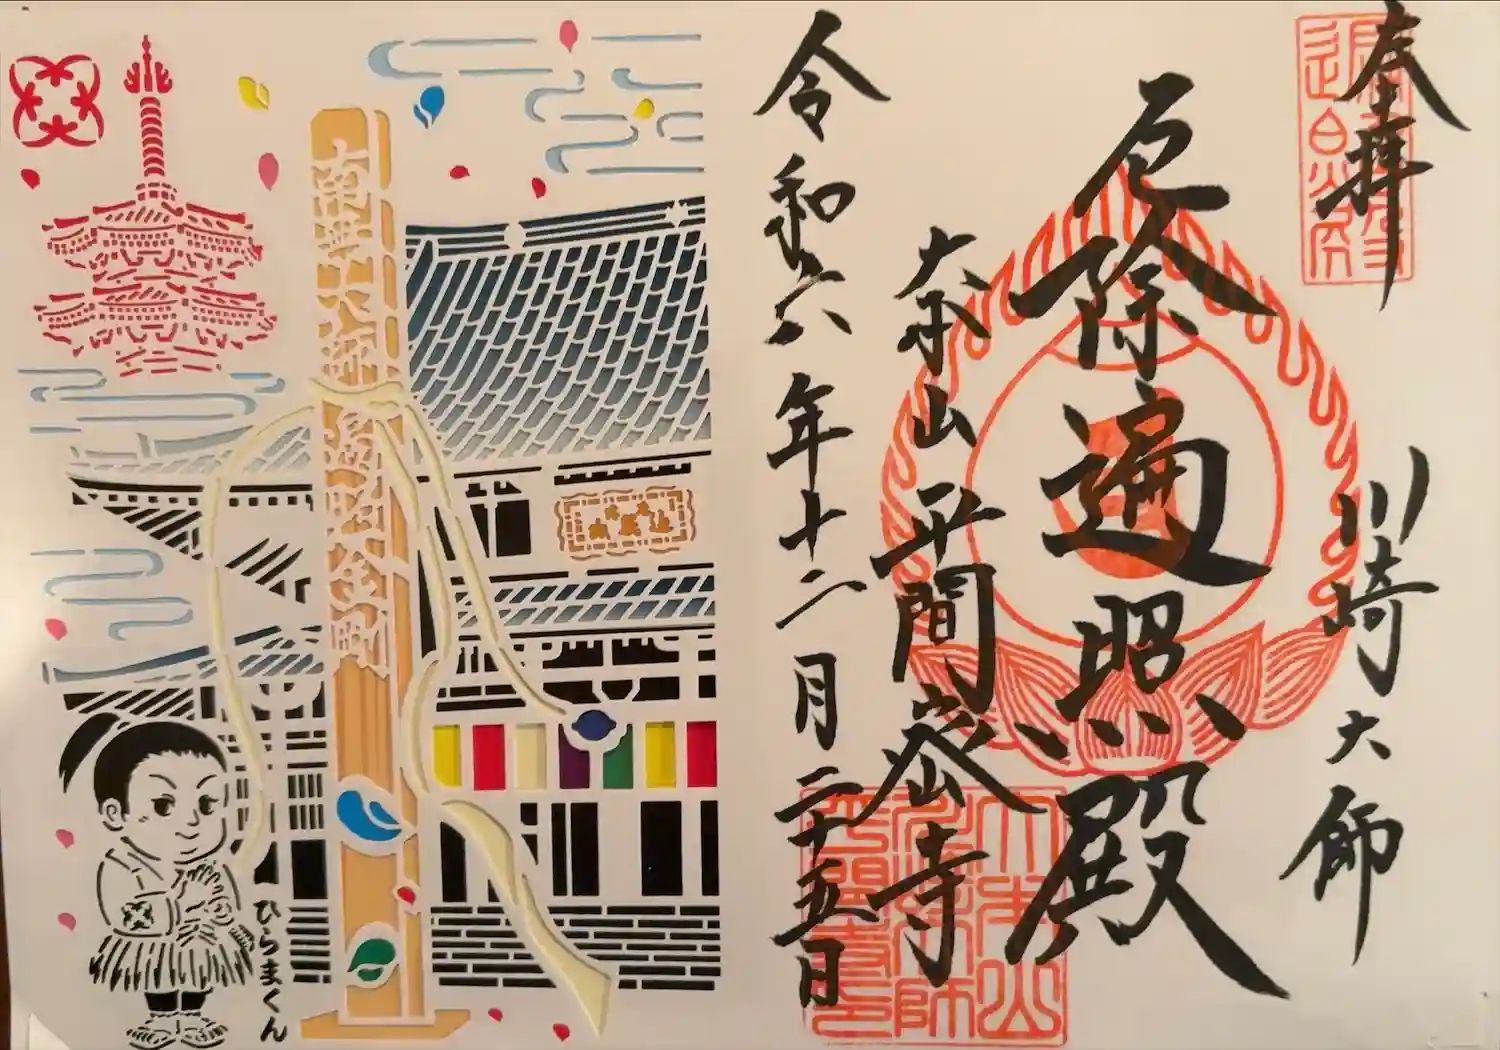 奉拝
川崎大師
厄除遍照殿
大本山平間寺
令和六年十二月二十五日
南無大師
遍照金剛
ひらまくん